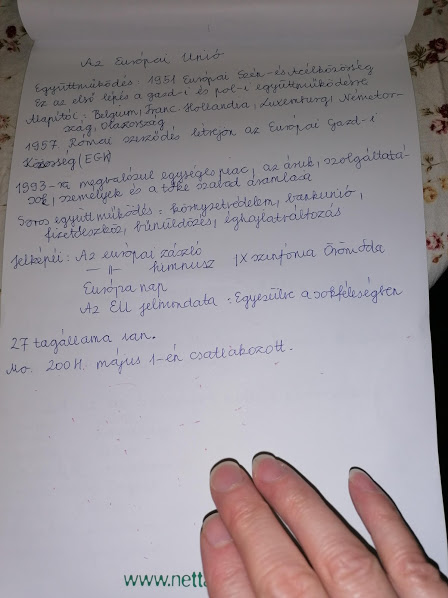 Az Európai Unió
Együttműködés: 1951 Európai Szén- és Acélközösség
Ez az első lépés a gazd-i és pol-i együttműködésre
Alapítói: Belgium, Franc. Hollandia, Luxemburg, Németor-
szág, Olaszország
1957 Római szerződés létrejön az Európai Gazd-i
Közösség (EGK)
1993-ra megvalósul egységes piac, az áruk, szolgáltatá-
sok, személyek és a tőke szabad áramlása
Soros együttműködés: környezetvédelem, bankunió,
fizetőeszköz, bűnüldözés, éghajlatváltozás
Jelképei: Az európai zászló
— || — himnusz IX szinfónia Örömóda
Európa nap
Az EU jelmondata: Egyesülve a sokféleségben
27 tagállama van.
Mo. 2004. május 1-én csatlakozott.
www.netta